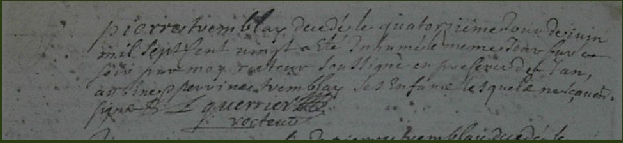 pierre tremblay decedé le quatorzieme jour de juin
mil sept cent vingt a eté Inhumé le meme jour sur le
soir par moy recteur soussigné en presence de Jan,
et perrine tremblay ses Enfans lesquels ne scavent
signer
guerrier
recteur
tremblay decedé le